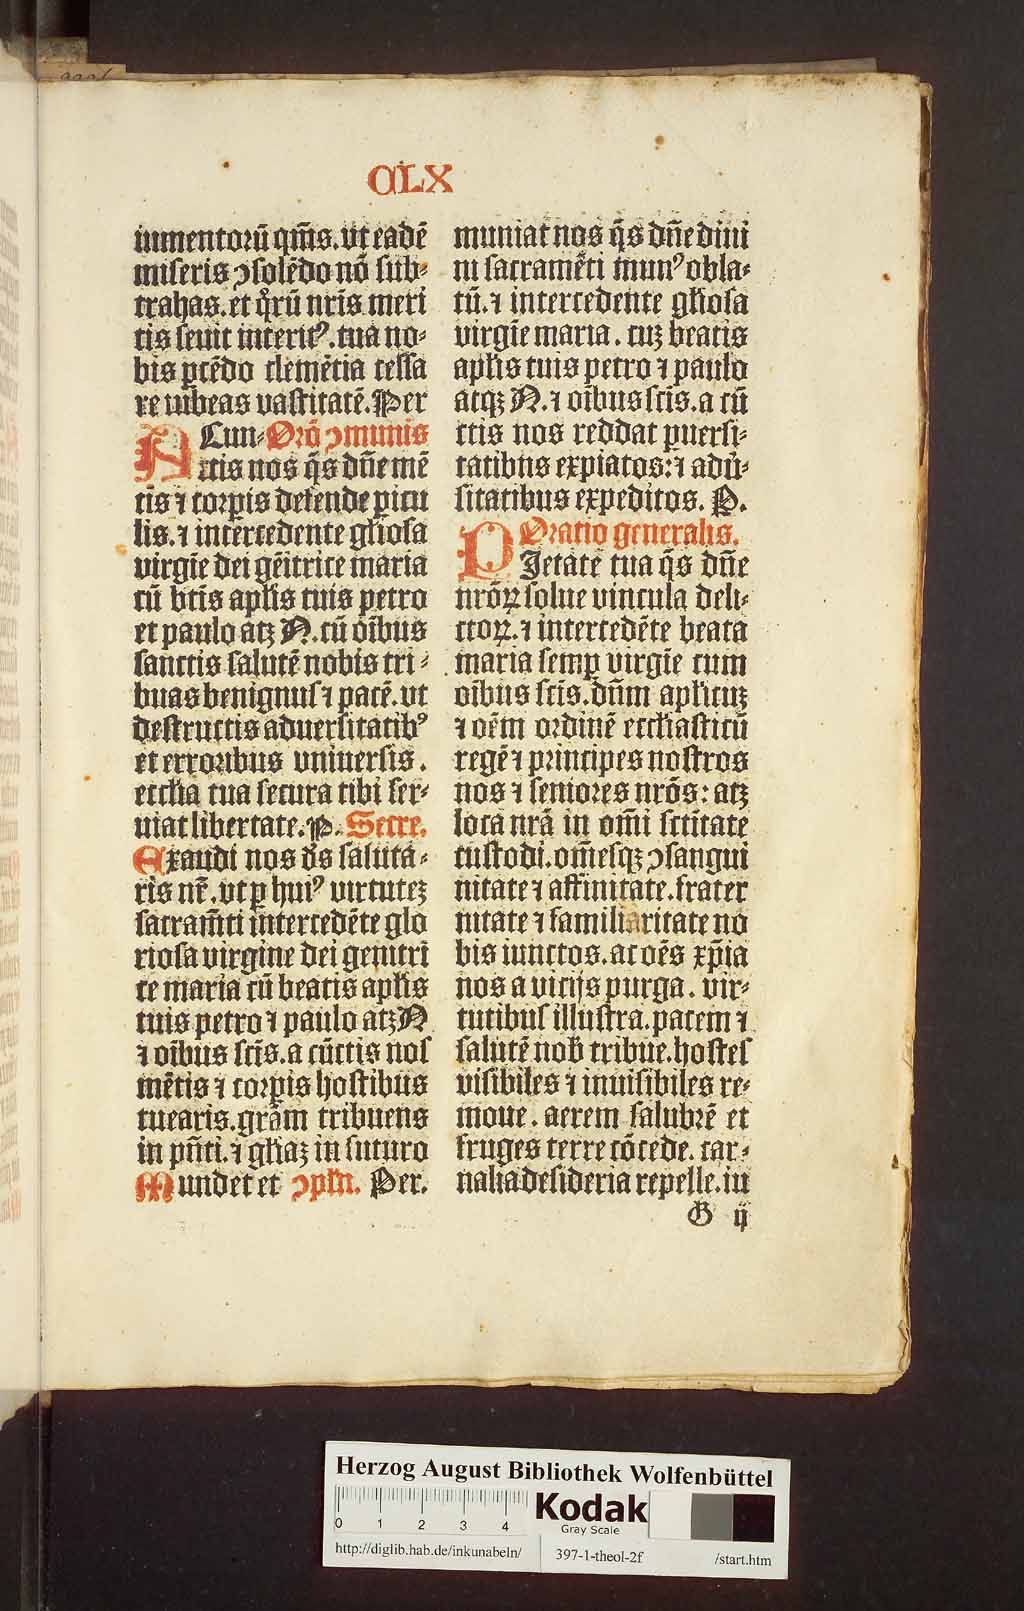 CLX
iumentorū qm̄s. vt eadē
miseris ɔsolēdo nō sub⸗
trahas. et q̊rū nr̄is meri
tis seuit interitꝰ. tua no⸗
bis p̄cēdo clemētia cessa
re iubeas vastitatē. Per
A Cun⸗ Orō ɔmunis
ctis nos q̄s dn̄e mē
tis ⁊ corꝑis defende ꝑicu
lis. ⁊ intercedente gl̄iosa
virgīe dei gēitrice maria
cū bt̄is apl̄is tuis petro
et paulo atꝫ N. cū oībus
sanctis salutē nobis tri⸗
buas benignus ⁊ pacē. vt
destructis aduersitatibꝰ
et erroribus vniuersis.
eccl̄ia tua secura tibi ser⸗
uiat libertate. P. Secre.
Exaudi nos d̄s saluta⸗
ris nr̄. vt ꝑ huiꝰ virtutēꝫ
sacram̄ti intercedēte glo
riosa virgine dei genitri
ce maria cū beatis apl̄is
tuis petro ⁊ paulo atꝫ N
⁊ oībus sct̄is. a cūctis nos
mētis ⁊ corꝑis hostibus
tuearis. grām tribuens
in pn̄ti. ⁊ gl̄iaꝫ in futuro
Mundet et ɔpln̄. Per.
muniat nos q̄s dn̄e diui
ni sacramēti munꝰ obla⸗
tū. ⁊ intercedente gl̄iosa
virgīe maria. cuꝫ beatis
apl̄is tuis petro ⁊ paulo
atqꝫ N. ⁊ oībus sct̄is. a cū
ctis nos reddat ꝑuersi⸗
tatibus expiatos: ⁊ adū⸗
sitatibus expeditos. P.
Oratio generalis.
PIetate tua q̄s dn̄e
nrōꝝ solue vincula deli⸗
ctoꝝ. ⁊ intercedēte beata
maria semꝑ virgīe cum
oībus sct̄is. dn̄m apl̄icuꝫ
⁊ oēm ordinē eccl̄iasticū
regē ⁊ principes nostros
nos ⁊ seniores nrōs: atꝫ
loca nr̄a in om̄i sct̄itate
custodi. om̄esqꝫ ɔsangui
nitate ⁊ affinitate. frater
nitate ⁊ familiaritate no
bis iunctos. ac oēs xp̄ia
nos a vicijs purga. vir⸗
tutibus illustra. pacem ⁊
salutē nob̄ tribue. hostes
visibiles ⁊ inuisibiles re⸗
moue. aerem salubrē et
fruges terre cōcede. car⸗
nalia desideria repelle. iu
G ij
Herzog August Bibliothek Wolfenbüttel
0 1 2 3 4
Kodak
Gray Scale
http://diglib.hab.de/inkunabeln/ 397-1-theol-2f /start.htm